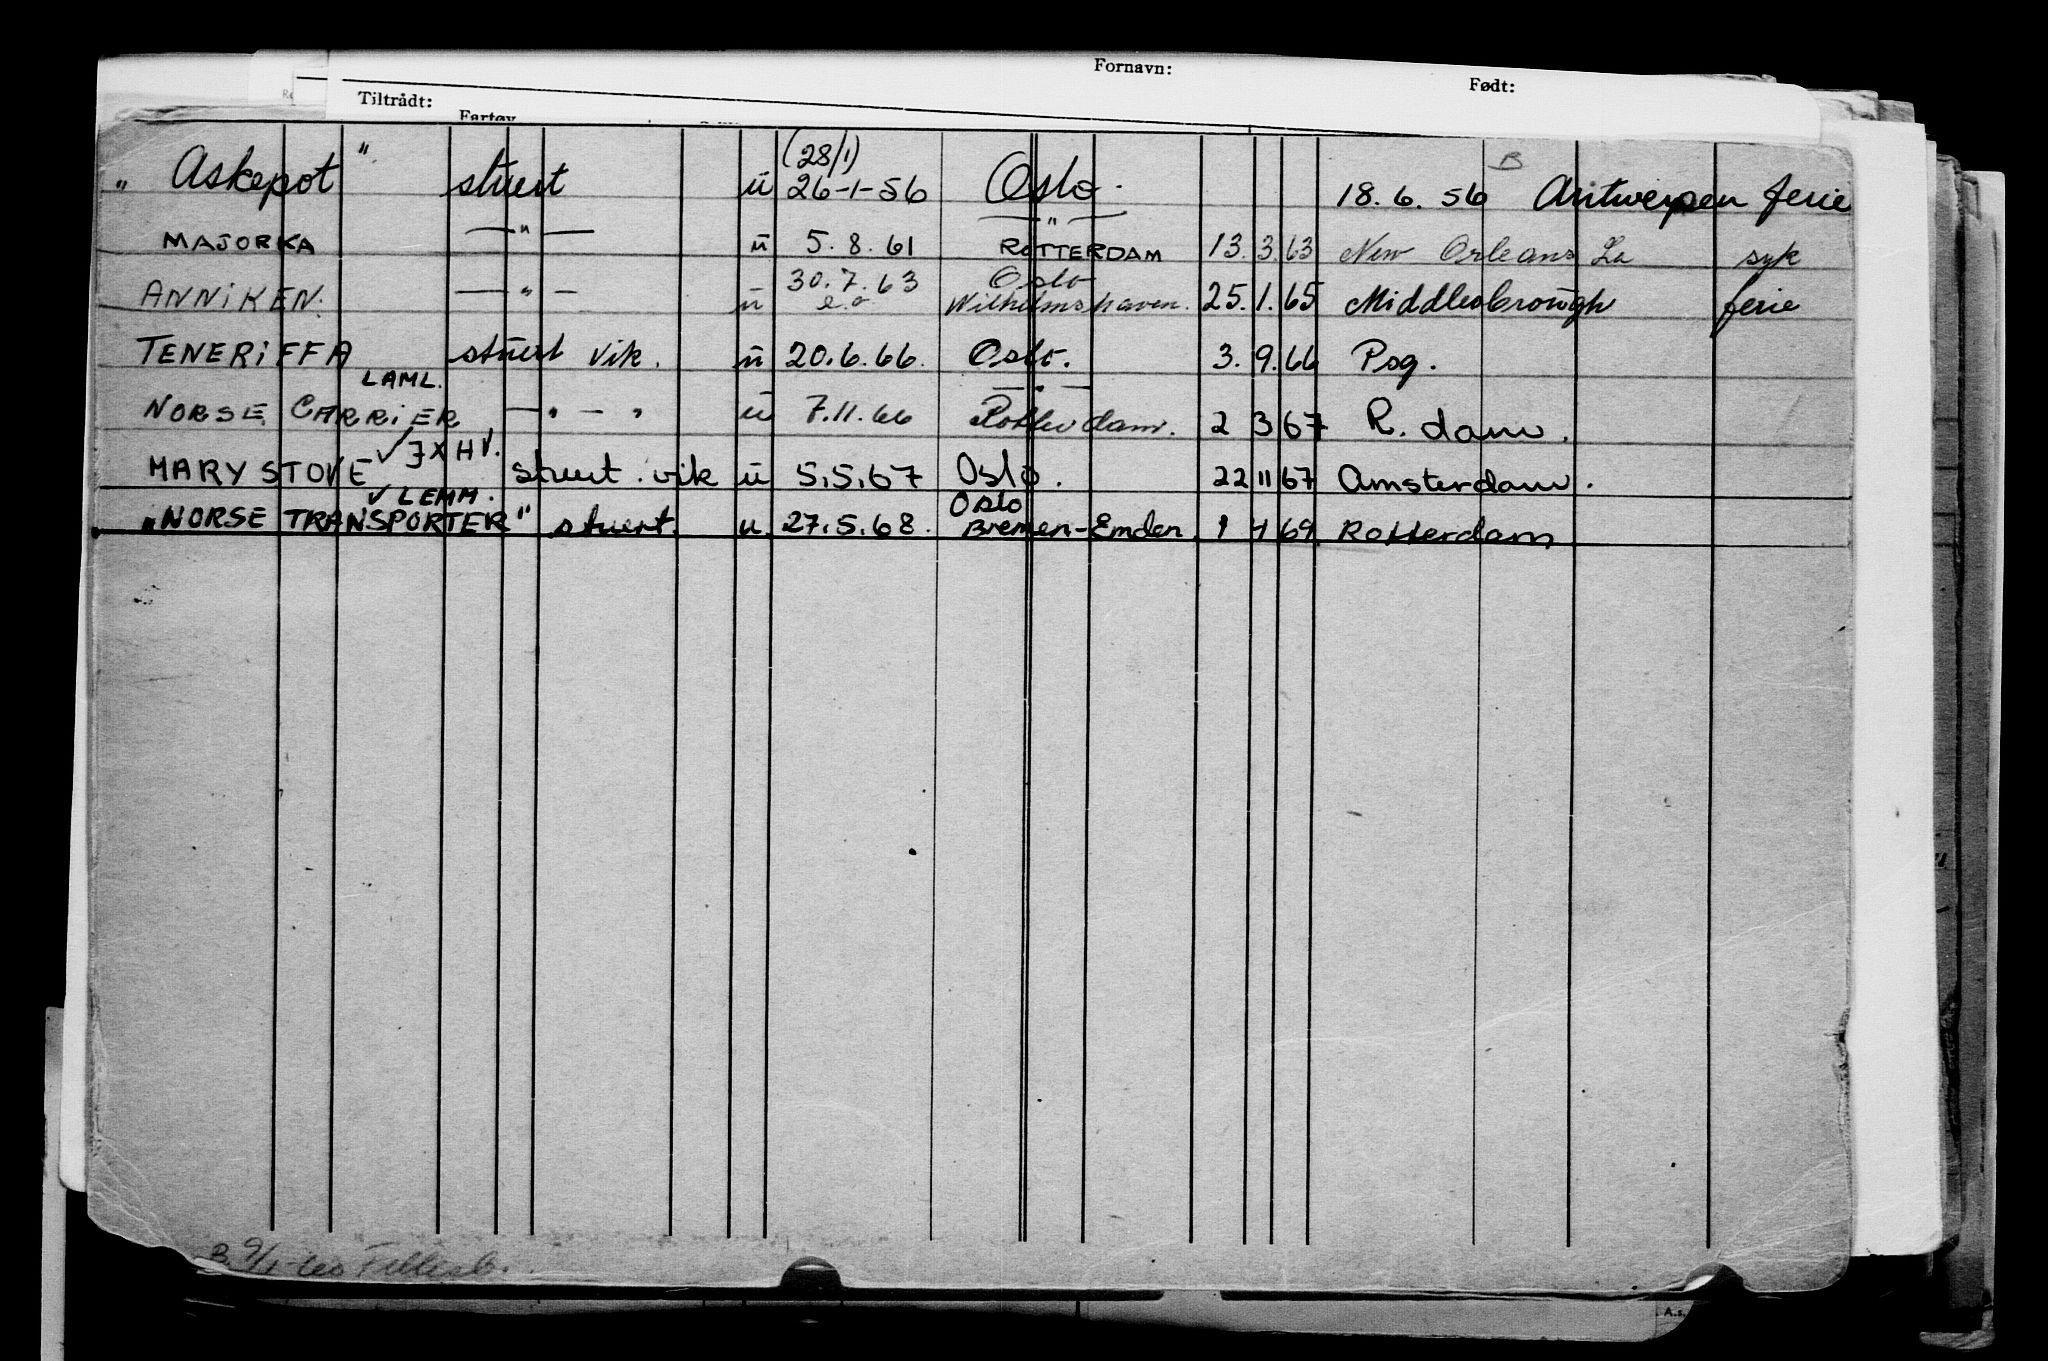 Fornavn:
Født:
Tiltrådt:
Fartøy
(28/1)
B
„ Askepot " stuert ü 26-1-56 Oslo. 18. 6. 56 Antwerpen ferie
— " —
MAJORKA — " — ü 5. 8. 61 ROTTERDAM 13. 3. 63 New Orleans La syk
30. 7. 63 Oslo
ANNIKEN. — " — ü e.o Wilhelmshaven. 25. 1. 65 Middlesbrough ferie
TENERIFFA stuert vik. ü 20. 6. 66. Oslo. 3. 9. 66 Psg.
LAML. — " —
NORSE CARRIER — " — " ü 7. 11. 66 Rotterdam. 2 3 67 R. dam.
√ JXHV.
MARY STOVE stuert. vik ü 5. 5. 67 Oslo. 22 11 67 Amsterdam.
√ LEMM. Oslo
„NORSE TRANSPORTER" stuert. u. 27. 5. 68. Bremen-Emden. 9 4 69 Rotterdam
A.s.